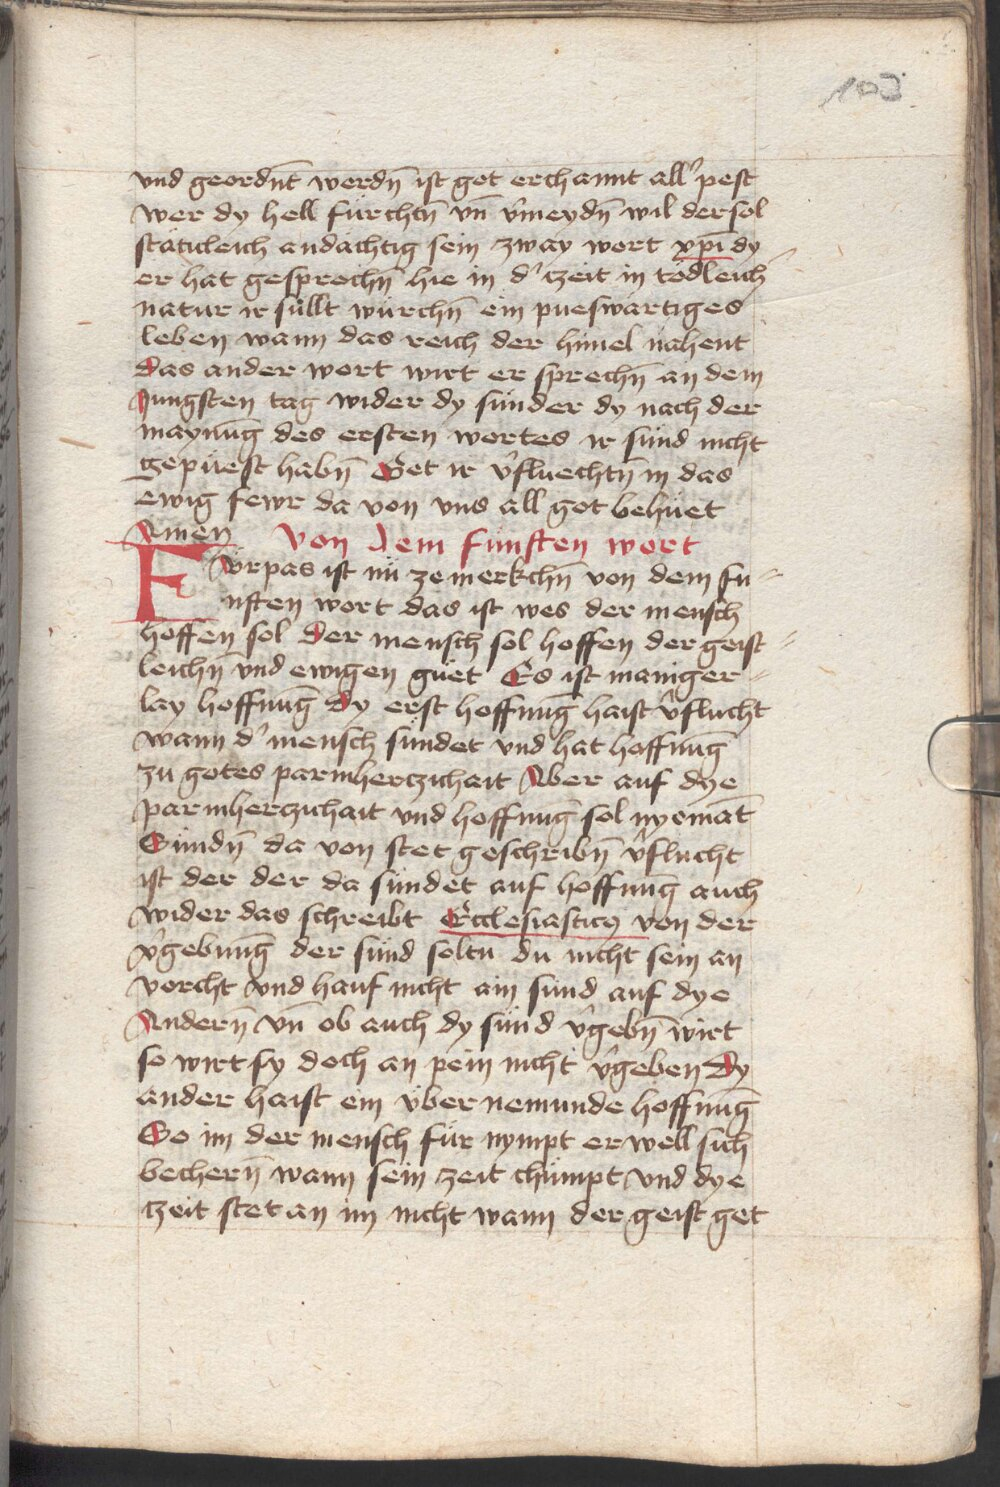 103
und geordn̄t werdn̄ ist got erchannt all' pest
wer dy hell fürchtn̄ vn̄ v'meydn̄ wil der sol
stätichleich andächtig sein zway wort xpi dy
er hat gesprochn̄ hie in d' tzeit in tödleich'
natur ir süllt würchn̄ ein pueswartiges
leben wann das reich der himel nahent
das ander wort wirt er sprechn̄ an dem
Jungsten tag wider dy sünder dy nach der
maynūg des ersten wortes ir sünd nicht
gepüest habn̄ Get ir v'fluechtn̄ in das
ewig fewr da von vns all got behüet
Amen Von dem fünften wort
Fürpas ist nü ze merkchn̄ von dem fu-
nften wort das ist wes der mensch
hoffen sol Der mensch sol hoffen der geist-
leichn̄ vnd ewigen güet Es ist maniger-
lay hoffnūg Dy erst hoffnūg haist v'flucht
wann d' mensch sündet vnd hat hoffnūg
zu gotes parmhertzichait Aber auf dye
parmhertzichait vnd hoffnūg sol nyemāt
Sündn̄ da von stet geschribn̄ v'flucht
ist der der da sündet auf hoffnūg auch
wider das schreibt Ecclesiasticus von der
v'gebnūg der sünd soltu du nicht sein an
vorcht vnd hauf nicht ain sünd auf dye
Andern̄ vn̄ ob auch dy sünd v'gebn̄ wirt
so wirt sy doch an pein nicht v'geben Dy
ander haist ein vbernemunde hoffnūg
So im der mensch für nympt er well sich
bechern̄ wann sein zeit chümpt vnd dye
tzeit stet an im nicht wann der geist get